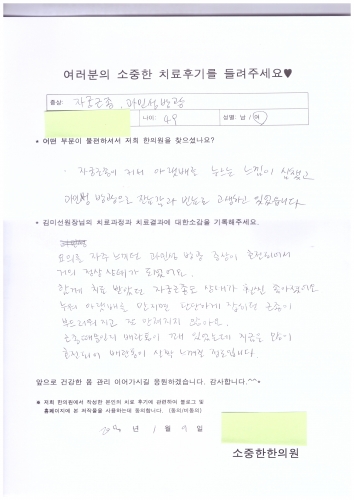 여러분의 소중한 치료후기를 들려주세요♥
증상: 자궁근종, 과민성방광
나이: 49 성별: 남 / 여
* 어떤 부분이 불편하셔서 저희 한의원을 찾으셨나요?
· 자궁근종이 커서 아랫배로 누르는 느낌이 심했고
과민성 방광으로 잔뇨감과 빈뇨로 고생하고 있었습니다
* 김미선원장님의 치료과정과 치료결과에 대한소감을 기록해주세요.
요의를 자주 느끼던 과민성 방광 증상이 호전되어서
거의 정상 상태가 되었어요.
함께 치료 받았던 자궁근종도 상태가 훨씬 좋아졌어요
누워 아랫배를 만지면 단단하게 잡히던 근종이
부드러워지고 잘 만져지지 않아요.
근종때문인지 배란통이 꽤 있었는데 지금은 많이
호전되어 배란통이 살짝 느껴질 정도입니다.
앞으로 건강한 몸 관리 이어가시길 응원하겠습니다. 감사합니다.^^*
* 저희 한의원에서 작성한 본인의 치료 후기에 관련하여 블로그 및
홈페이지에 본 저작물을 사용하는데 동의합니다. (동의/비동의)
년 1 월 9 일
소중한한의원